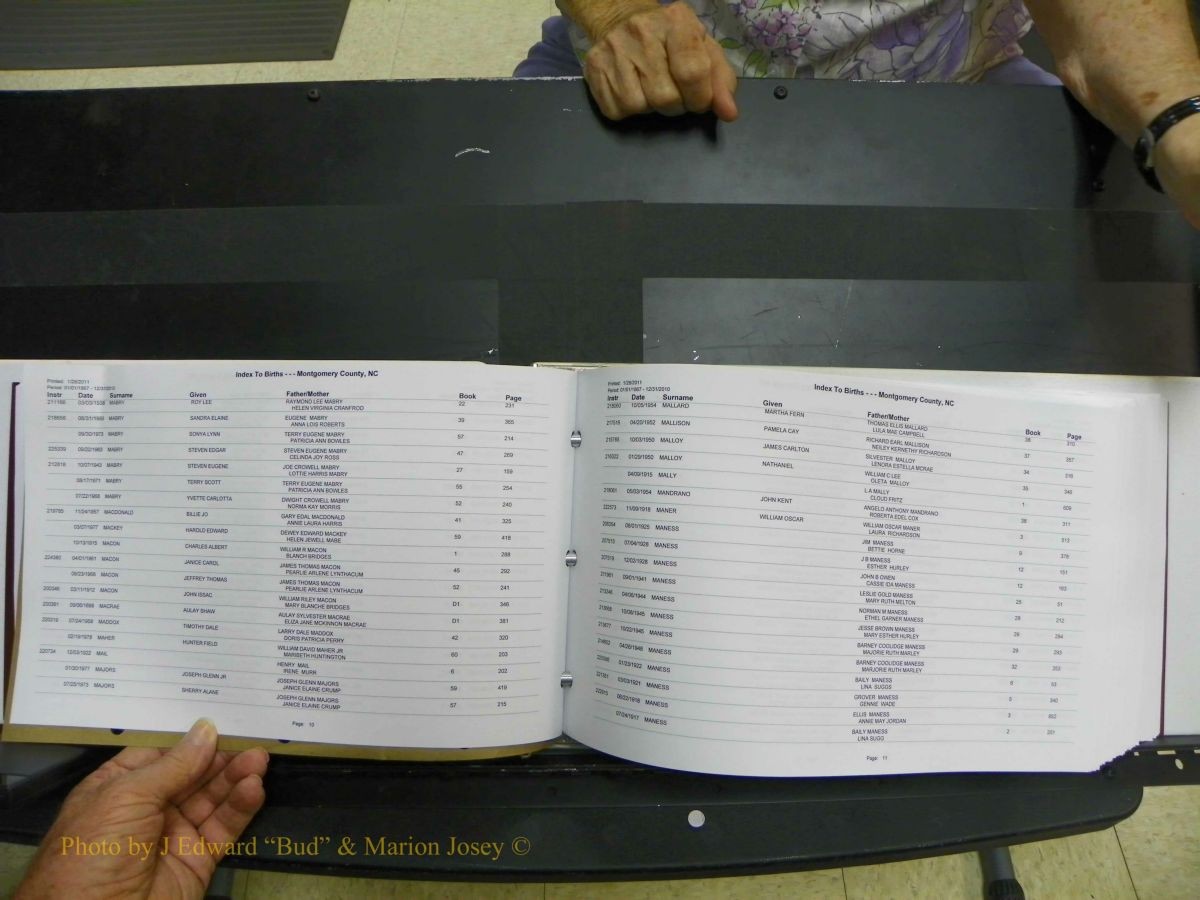 Printed: 1/26/2011
Period: 01/01/1967 - 12/31/2010
Index To Births - - - Montgomery County, NC
Instr Date Surname Given Father/Mother Book Page
MABRY ROY LEE RAYMOND LEE MABRY 22 231
HELEN VIRGINIA CRANFROD
MABRY SANDRA ELAINE EUGENE MABRY 39 365
ANNA LOIS ROBERTS
MABRY SONYA LYNN TERRY EUGENE MABRY 57 214
PATRICIA ANN BOWLES
MABRY STEVEN EDGAR STEVEN EUGENE MABRY 47 269
CELINDA JOY ROSS
MABRY STEVEN EUGENE JOE CROWELL MABRY 27 159
LOTTIE HARRIS MABRY
MABRY TERRY SCOTT TERRY EUGENE MABRY 55 254
PATRICIA ANN BOWLES
MABRY YVETTE CARLOTTA DWIGHT CROWELL MABRY 52 240
NORMA KAY MORRIS
MACDONALD BILLIE JO GARY EDAL MACDONALD 41 325
ANNIE LAURA HARRIS
03/07/1977 MACKEY HAROLD EDWARD DEWEY EDWARD MACKEY 59 418
HELEN JEWELL MABE
10/13/1915 MACON CHARLES ALBERT WILLIAM R MACON 1 288
BLANCH BRIDGES
224360 04/01/1961 MACON JANICE CAROL JAMES THOMAS MACON 45 292
PEARLIE ARLENE LYNTHACUM
MACON JEFFREY THOMAS JAMES THOMAS MACON 52 241
PEARLIE ARLENE LYNTHACUM
MACON JOHN ISSAC WILLIAM RILEY MACON D1 346
MARY BLANCHE BRIDGES
MACRAE AULAY SHAW AULAY SYLVESTER MACRAE D1 381
ELIZA JANE MCKINNON MACRAE
MADDOX TIMOTHY DALE LARRY DALE MADDOX 42 320
DORIS PATRICIA PERRY
02/19/1978 MAHER HUNTER FIELD WILLIAM DAVID MAHER JR 60 203
MARIBETH HUNTINGTON
220734 12/03/1922 MAIL HENRY MAIL 6 202
IRENE MURR
MAJORS JOSEPH GLENN JR JOSEPH GLENN MAJORS 59 419
JANICE ELAINE CRUMP
07/25/1973 MAJORS SHERRY ALANE JOSEPH GLENN MAJORS 57 215
JANICE ELAINE CRUMP
Page: 10
Printed: 1/26/2011
Period: 01/01/1967 - 12/31/2010
Index To Births - - - Montgomery County, NC
Instr Date Surname Given Father/Mother Book Page
10/05/1954 MALLARD MARTHA FERN THOMAS ELLIS MALLARD 38 310
LULA MAE CAMPBELL
04/20/1952 MALLISON PAMELA CAY RICHARD EARL MALLISON 37
NEILEY KERNETHY RICHARDSON
10/03/1950 MALLOY JAMES CARLTON SILVESTER MALLOY 34
LENORA ESTELLA MCRAE
01/29/1950 MALLOY NATHANIEL WILLIAM C LEE 35
OLETA MALLOY
04/09/1915 MALLY L A MALLY 1 609
CLOUD FRITZ
05/03/1954 MANDRANO JOHN KENT ANGELO ANTHONY MANDRANO 38 311
ROBERTA EDEL COX
11/09/1918 MANER WILLIAM OSCAR WILLIAM OSCAR MANER 3 513
LAURA RICHARDSON
MANESS JIM MANESS 9 378
BETTIE HORNE
07/04/1928 MANESS J B MANESS 12 151
ESTHER HURLEY
12/02/1928 MANESS JOHN B OWEN 12
CASSIE IDA MANESS
MANESS LESLIE GOLD MANESS 25 51
MARY RUTH MELTON
MANESS NORMAN M MANESS 28 212
ETHEL GARNER MANESS
MANESS JESSE BROWN MANESS 29 294
MARY ESTHER HURLEY
10/22/1945 MANESS BARNEY COOLIDGE MANESS 29 293
MARJORIE RUTH MARLEY
MANESS BARNEY COOLIDGE MANESS 32
MARJORIE RUTH MARLEY
01/23/1922 MANESS BAILY MANESS 6 53
LINA SUGGS
03/03/1921 MANESS GROVER MANESS 5 340
GENNIE WADE
MANESS ELLIS MANESS 3
ANNIE MAY JORDAN
07/24/1917 MANESS BAILY MANESS 2
LINA SUGG
Page: 11
Photo by J Edward “Bud” & Marion Josey ©